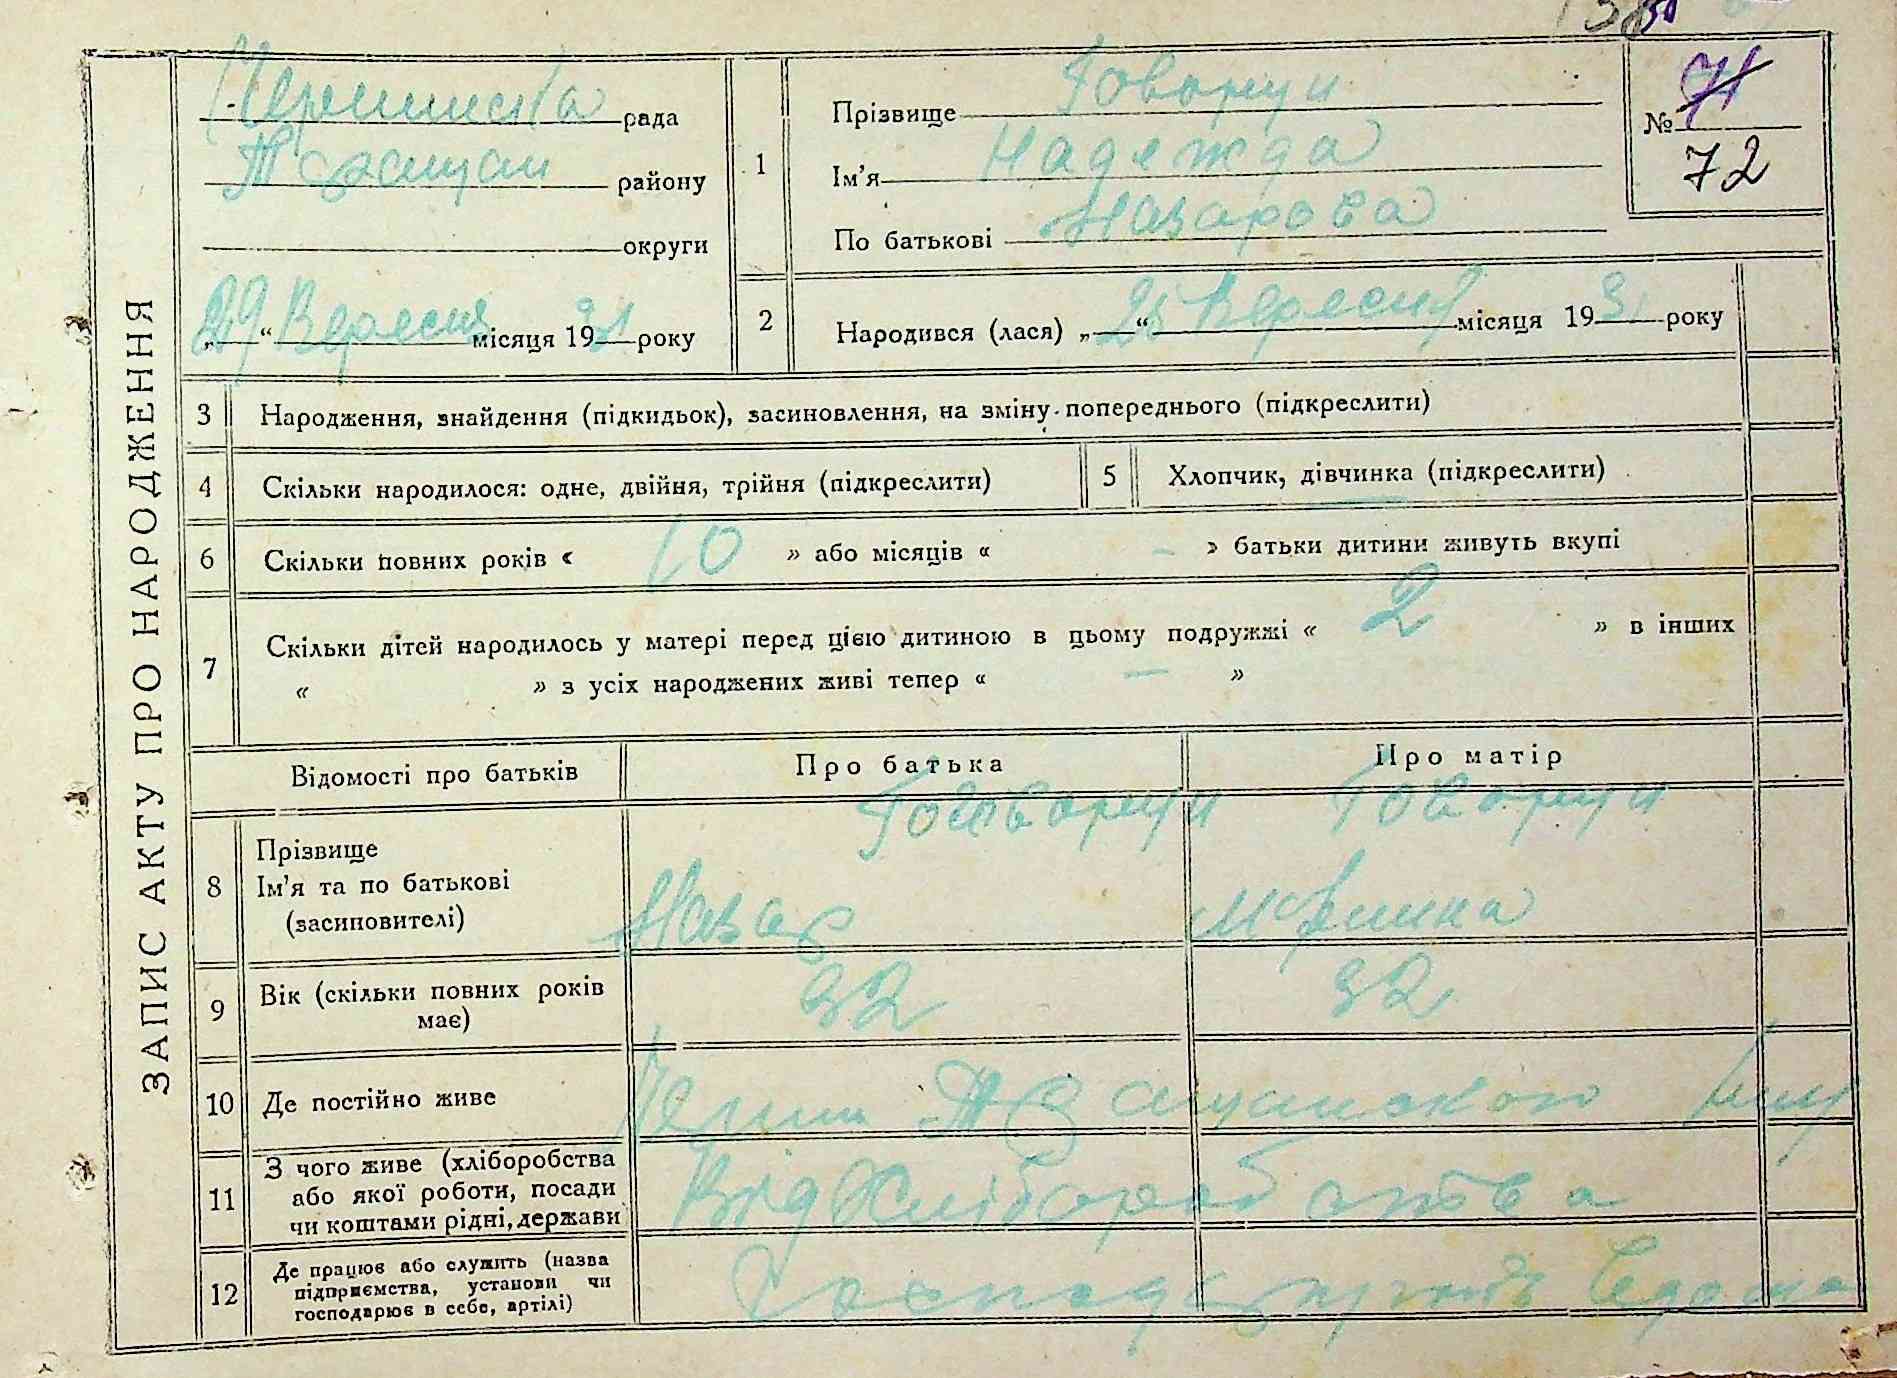 ЗАПИС АКТУ ПРО НАРОДЖЕННЯ
рада
району
округи
„29“ Вересня місяця 1931 року
1
Прізвище Говорун
Ім’я Надежда
По батькові Назарова
№ 71
72
2
Народився (лася) „25“ Вересня місяця 1931 року
3 Народження, знайдення (підкидьок), засиновлення, на зміну попереднього (підкреслити)
4 Скільки народилося: одне, двійня, трійня (підкреслити)
5 Хлопчик, дівчинка (підкреслити)
6 Скільки повних років « 10 » або місяців « – » батьки дитини живуть вкупі
7 Скільки дітей народилось у матері перед цією дитиною в цьому подружжі « 2 » в інших
« » з усіх народжених живі тепер « – »
Відомості про батьків Про батька Про матір
8 Прізвище
Ім’я та по батькові
(засиновителі)
Говорун Говорун
Назар
9 Вік (скільки повних років
має)
32 32
10 Де постійно живе
11 З чого живе (хліборобства
або якої роботи, посади
чи коштами рідні, держави
Від Хлібороб ства
12 Де працює або служить (назва
підприємства, установи чи
господарює в себе, артілі)